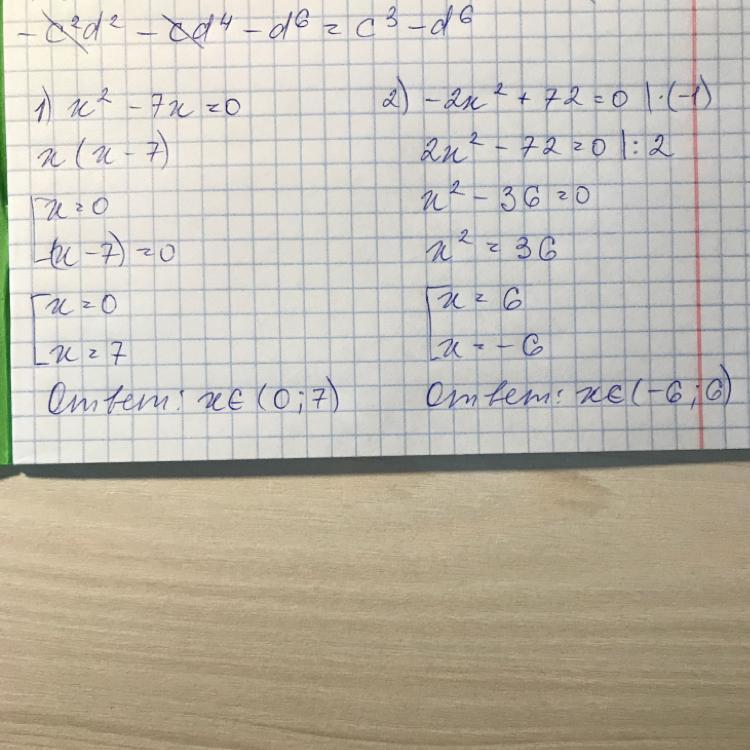 - c²d² - cd⁴ - d⁶ = c³ - d⁶
1) x² - 7x = 0
x (x - 7)
x = 0
(x - 7) = 0
x = 0
x = 7
Ответ: x ∈ (0; 7)
2) -2x² + 72 = 0 |·(-1)
2x² - 72 = 0 |: 2
x² - 36 = 0
x² = 36
x = 6
x = -6
Ответ: x ∈ (-6; 6)